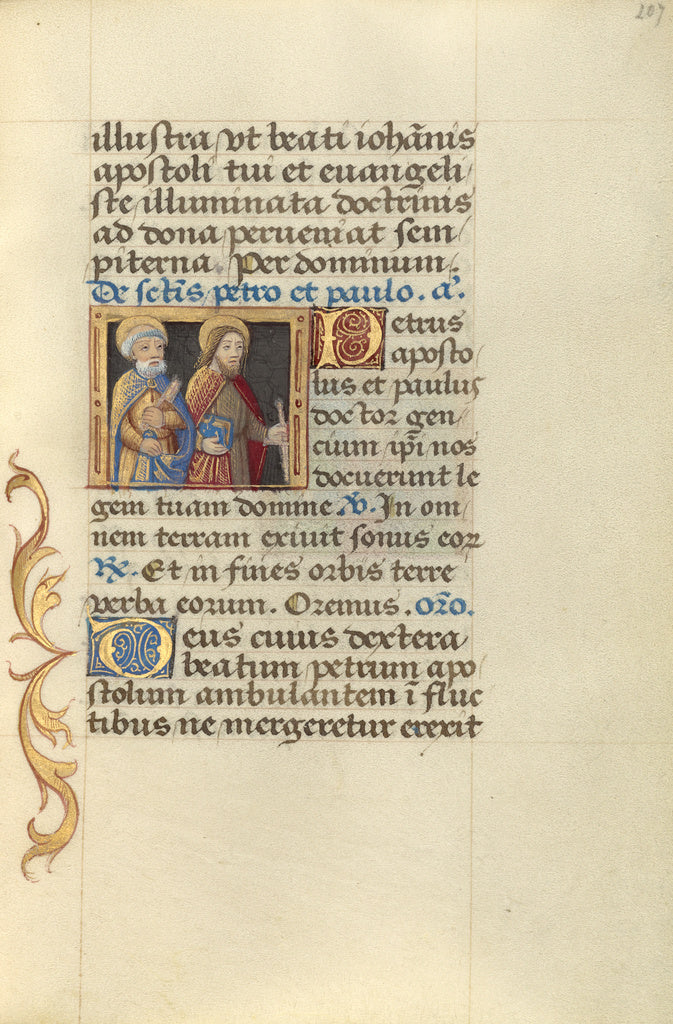 207
illustra vt beati ioh̄anis
apostoli tui et euangeli/
ste illuminata doctrinis
ad dona perueniat sem/
piterna. Per dominum.
De sctīs petro et paulo. a͞.
Petrus
aposto/
lus et paulus
doctor gen/
cium ip̄i nos
docuerunt le
gem tuam domine. V̄. In om/
nem terram exiuit sonus eoꝝ
R̄x. Et in fines orbis terre
verba eorum. Oremus. or̄o.
Deus cuius dextera
beatum petrum apo/
stolum ambulantem ī fluc
tibus ne mergeretur erexit